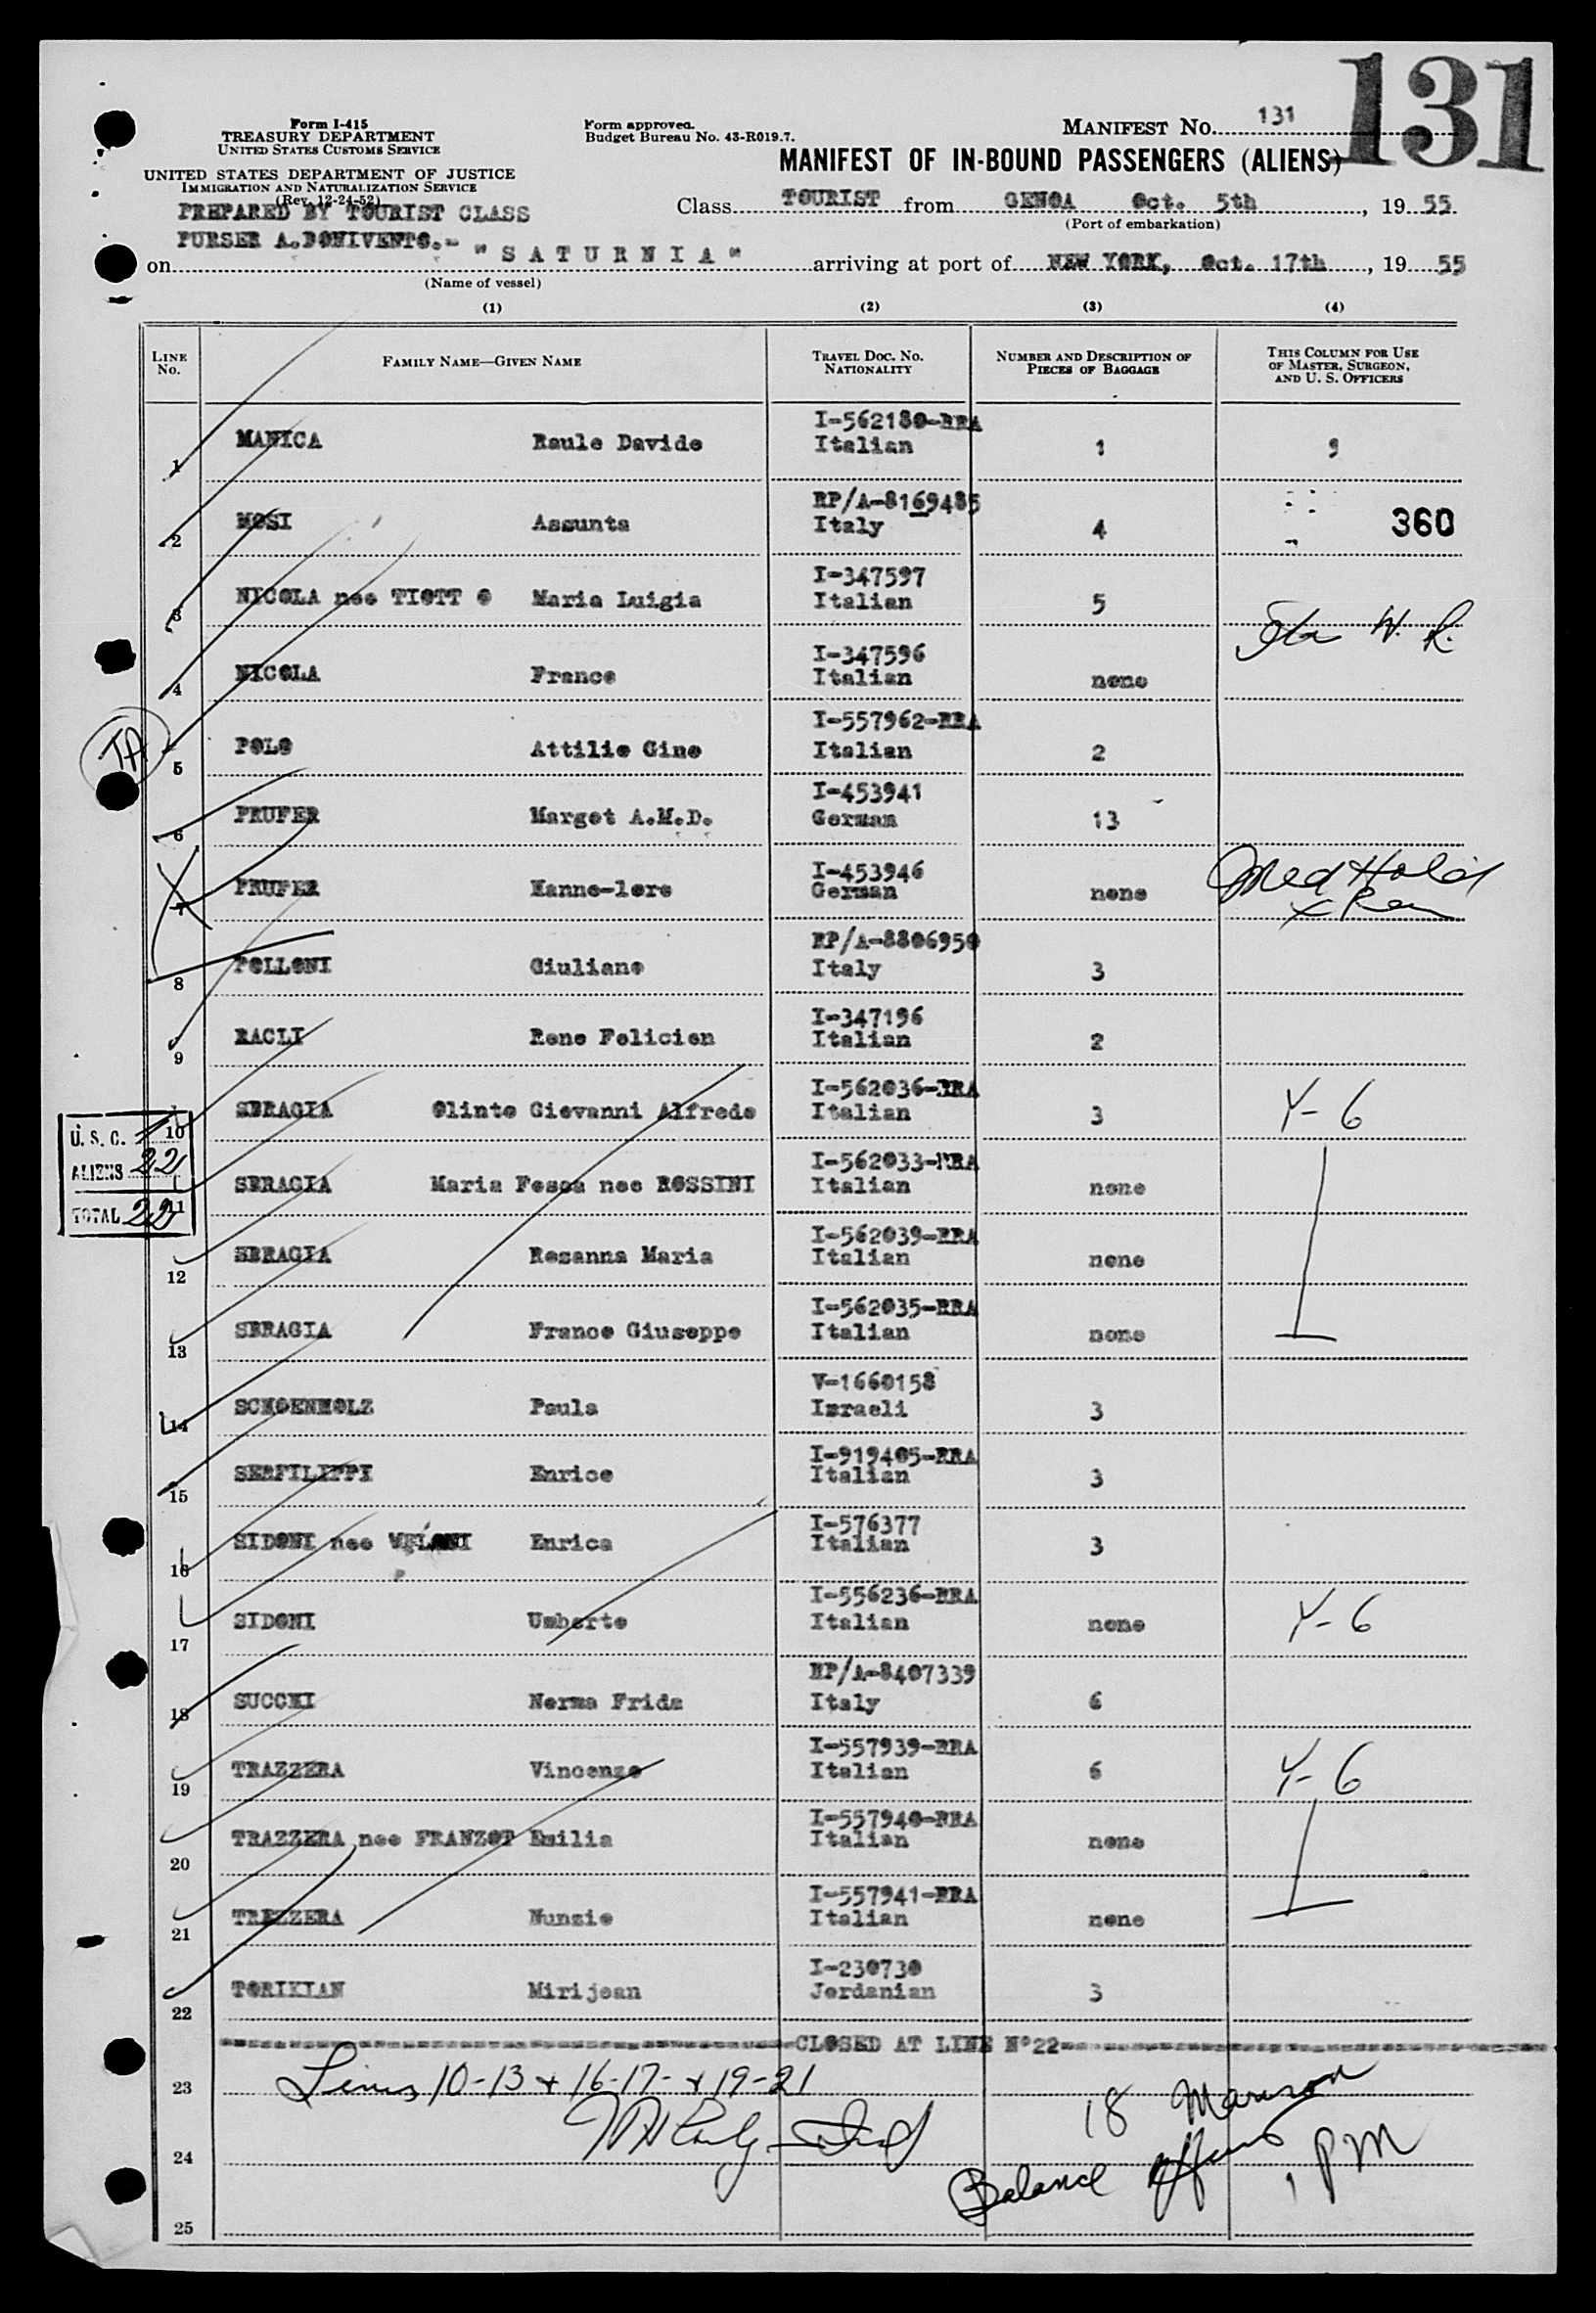 131
Form I-415
TREASURY DEPARTMENT
UNITED STATES CUSTOMS SERVICE
UNITED STATES DEPARTMENT OF JUSTICE
IMMIGRATION AND NATURALIZATION SERVICE
(Rev. 12-24-52)
Form approved.
Budget Bureau No. 43-R019.7.
MANIFEST No. 131
MANIFEST OF IN-BOUND PASSENGERS (ALIENS)
PREPARED BY TOURIST CLASS
PURSER A.BONIVENTO.-
Class TOURIST from GENOA Oct. 5th, 1955
(Port of embarkation)
on "SATURNIA" arriving at port of NEW YORK, Oct. 17th, 1955
(Name of vessel)
(1) (2) (3) (4)
LINE No. FAMILY NAME—GIVEN NAME TRAVEL DOC. No. NATIONALITY NUMBER AND DESCRIPTION OF PIECES OF BAGGAGE THIS COLUMN FOR USE OF MASTER, SURGEON, AND U. S. OFFICERS
1 MANICA Raule Davide I-562180-RRA Italian 1 9
2 MOSI Assunta RP/A-8169485 Italy 4 360
3 NICOLA nee TIOTT O Maria Luigia I-347597 Italian 5
W. R.
4 NICOLA Franco I-347596 Italian none
TA
5 POLO Attilio Gino I-557962-RRA Italian 2
6 PRUFER Margot A.M.D. I-453941 German 13
7 PRUFER Hanne-lore I-453946 German none Med Hold
8 POLLONI Giuliano RP/A-8806950 Italy 3
9 RACLI Rene Felicien I-347196 Italian 2
10 SBRAGIA Olinto Giovanni Alfredo I-562036-RRA Italian 3 Y-6
U. S. C.
ALIENS 22
TOTAL 22
11 SBRAGIA Maria Fosca nee ROSSINI I-562033-RRA Italian none
12 SBRAGIA Rosanna Maria I-562039-RRA Italian none
13 SBRAGIA Franco Giuseppe I-562035-RRA Italian none
14 SCHOENHOLZ Paula V-1660158 Israeli 3
15 SERFILIPPI Enrico I-919405-RRA Italian 3
16 SIDONI nee MELONI Enrica I-576377 Italian 3
17 SIDONI Umberto I-556236-RRA Italian none Y-6
18 SUCCHI Norma Frida RP/A-8407339 Italy 6
19 TRAZZERA Vincenzo I-557939-RRA Italian 6 Y-6
20 TRAZZERA nee FRANZOT Emilia I-557940-RRA Italian none
21 TREZZERA Nunzio I-557941-RRA Italian none
22 TORIKIAN Mirijean I-230730 Jordanian 3
CLOSED AT LINE N°22
23 Lines 10-13 + 16-17- + 19-21
18
24
Balance 1 PM
25